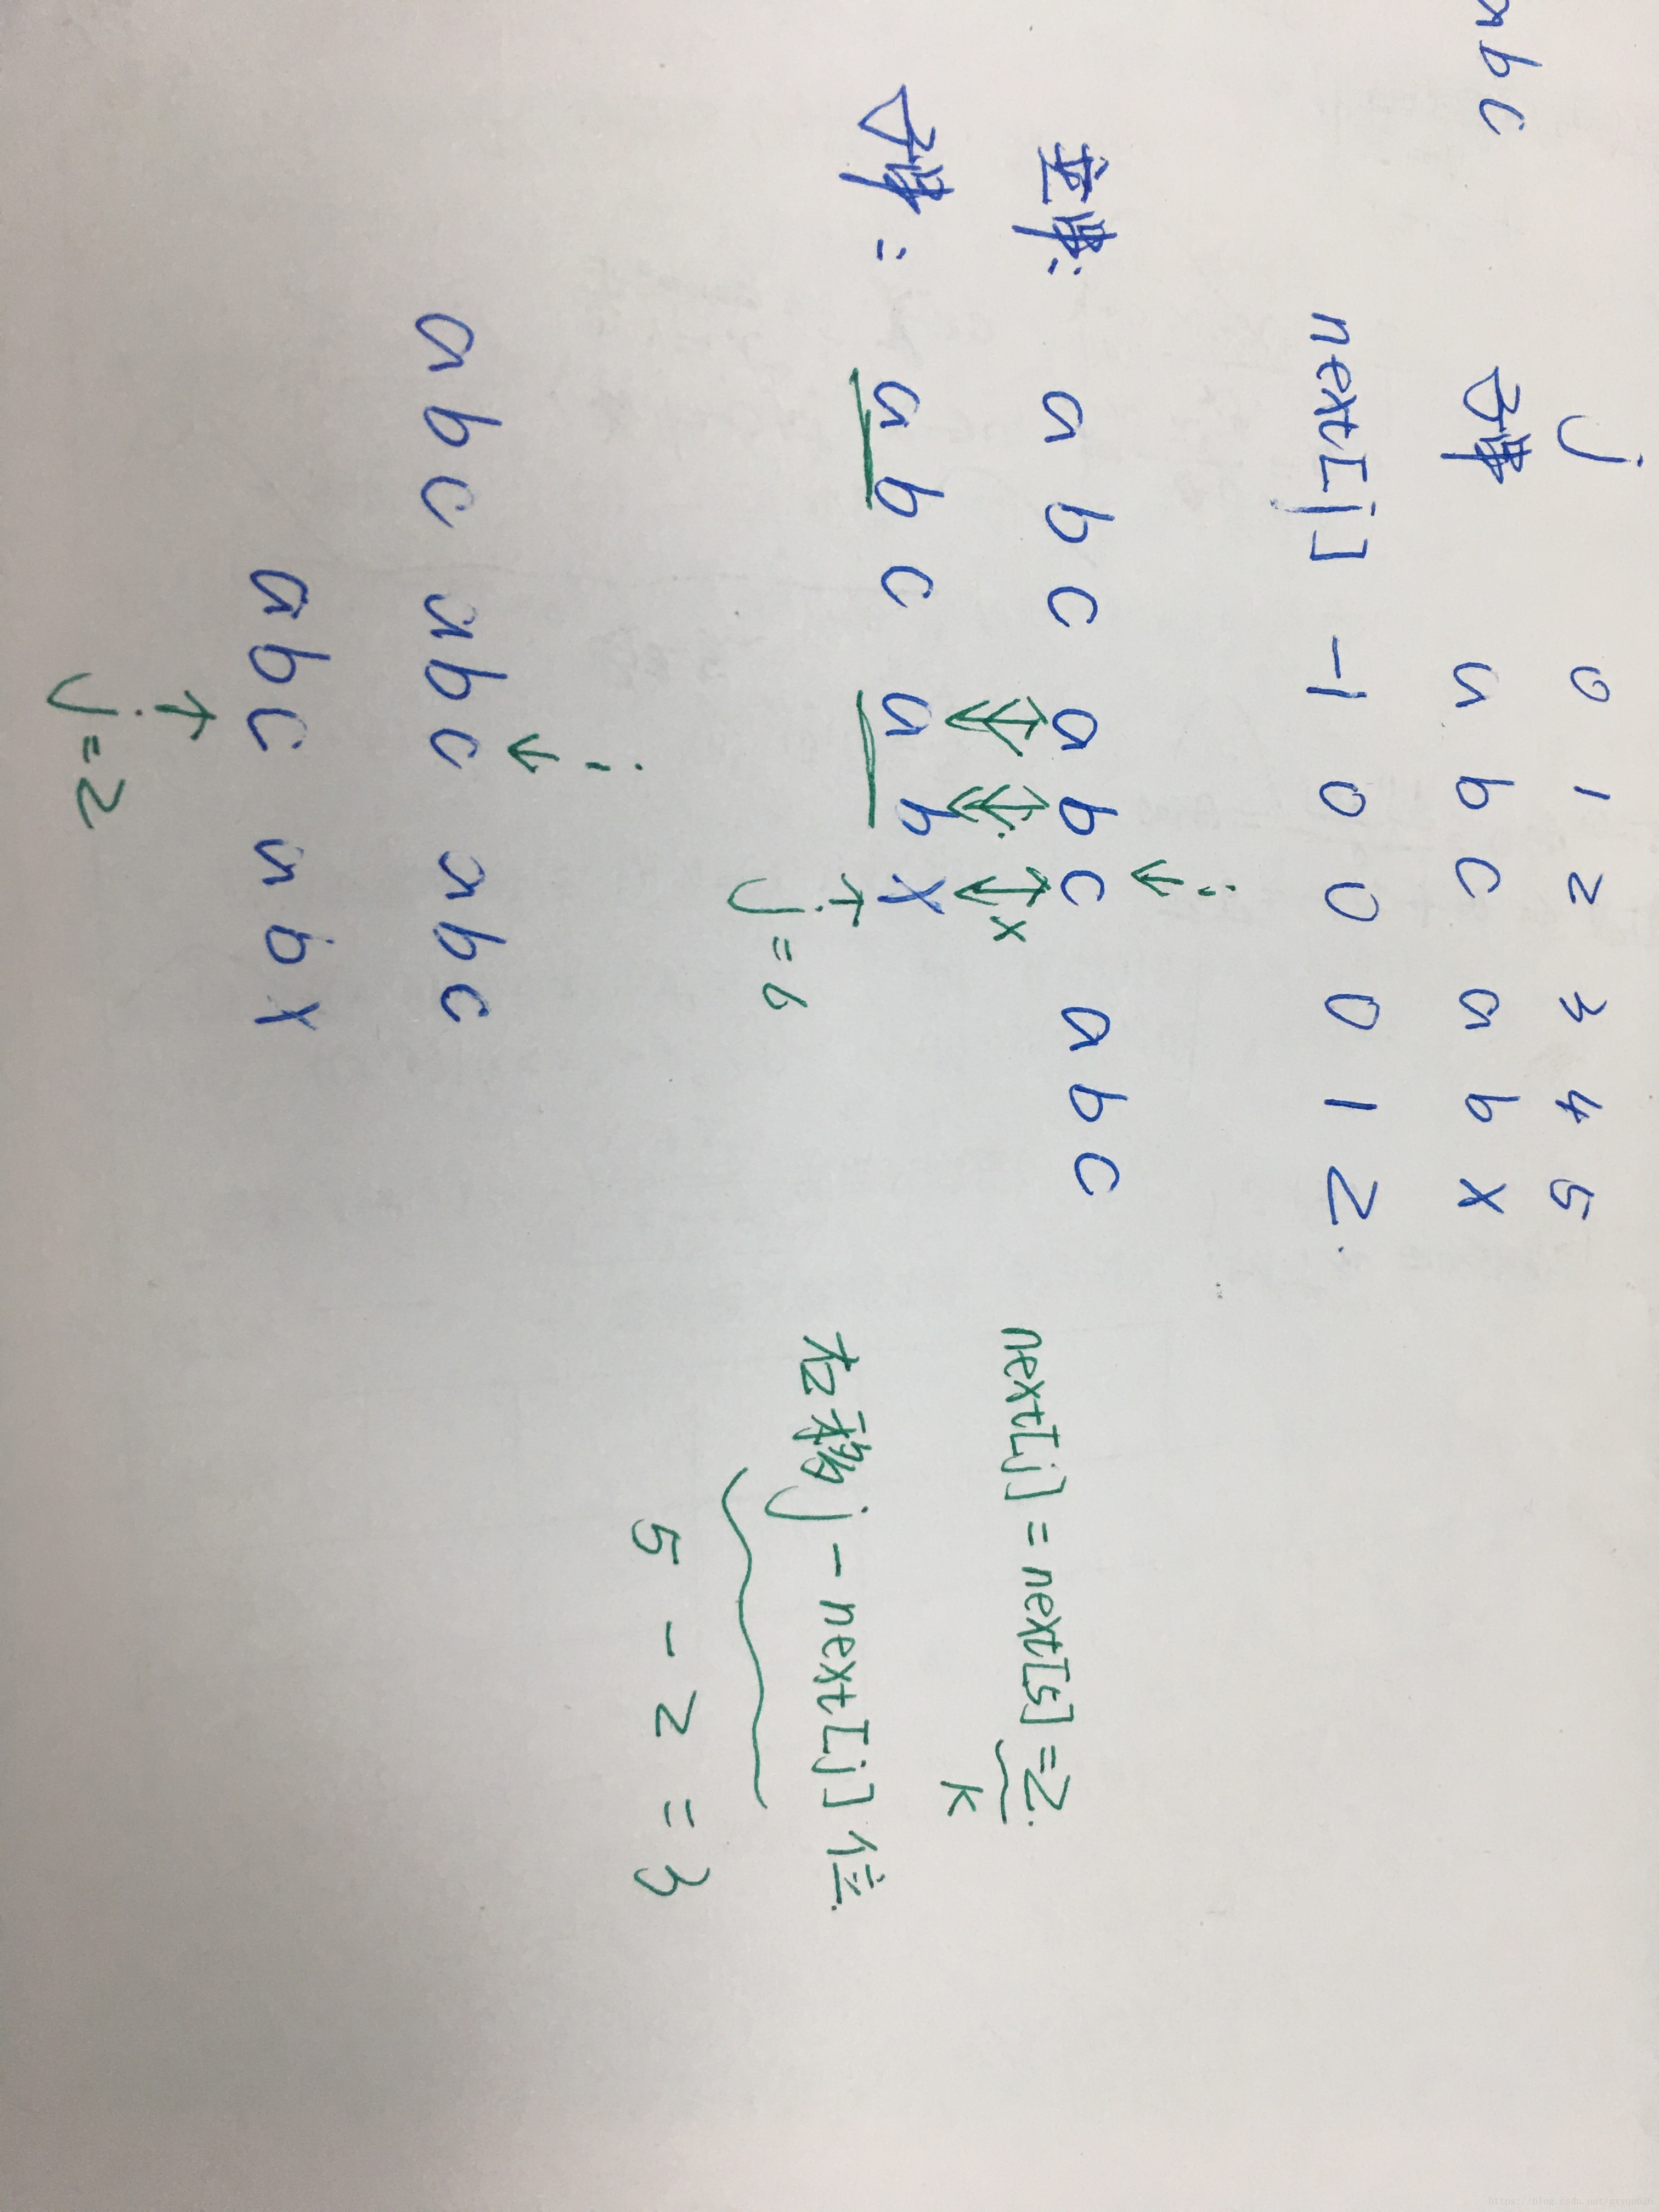 j 0 1 2 3 4 5
abc 子串 a b c a b x
next[j] -1 0 0 0 1 2.
i
主串: a b c a b c a b c
x
子串: a b c a b x
j=6
next[j]=next[5]=2.
k
右移j-next[j]位.
5-2=3
i
a b c a b c a b c
a b c a b x
j=2